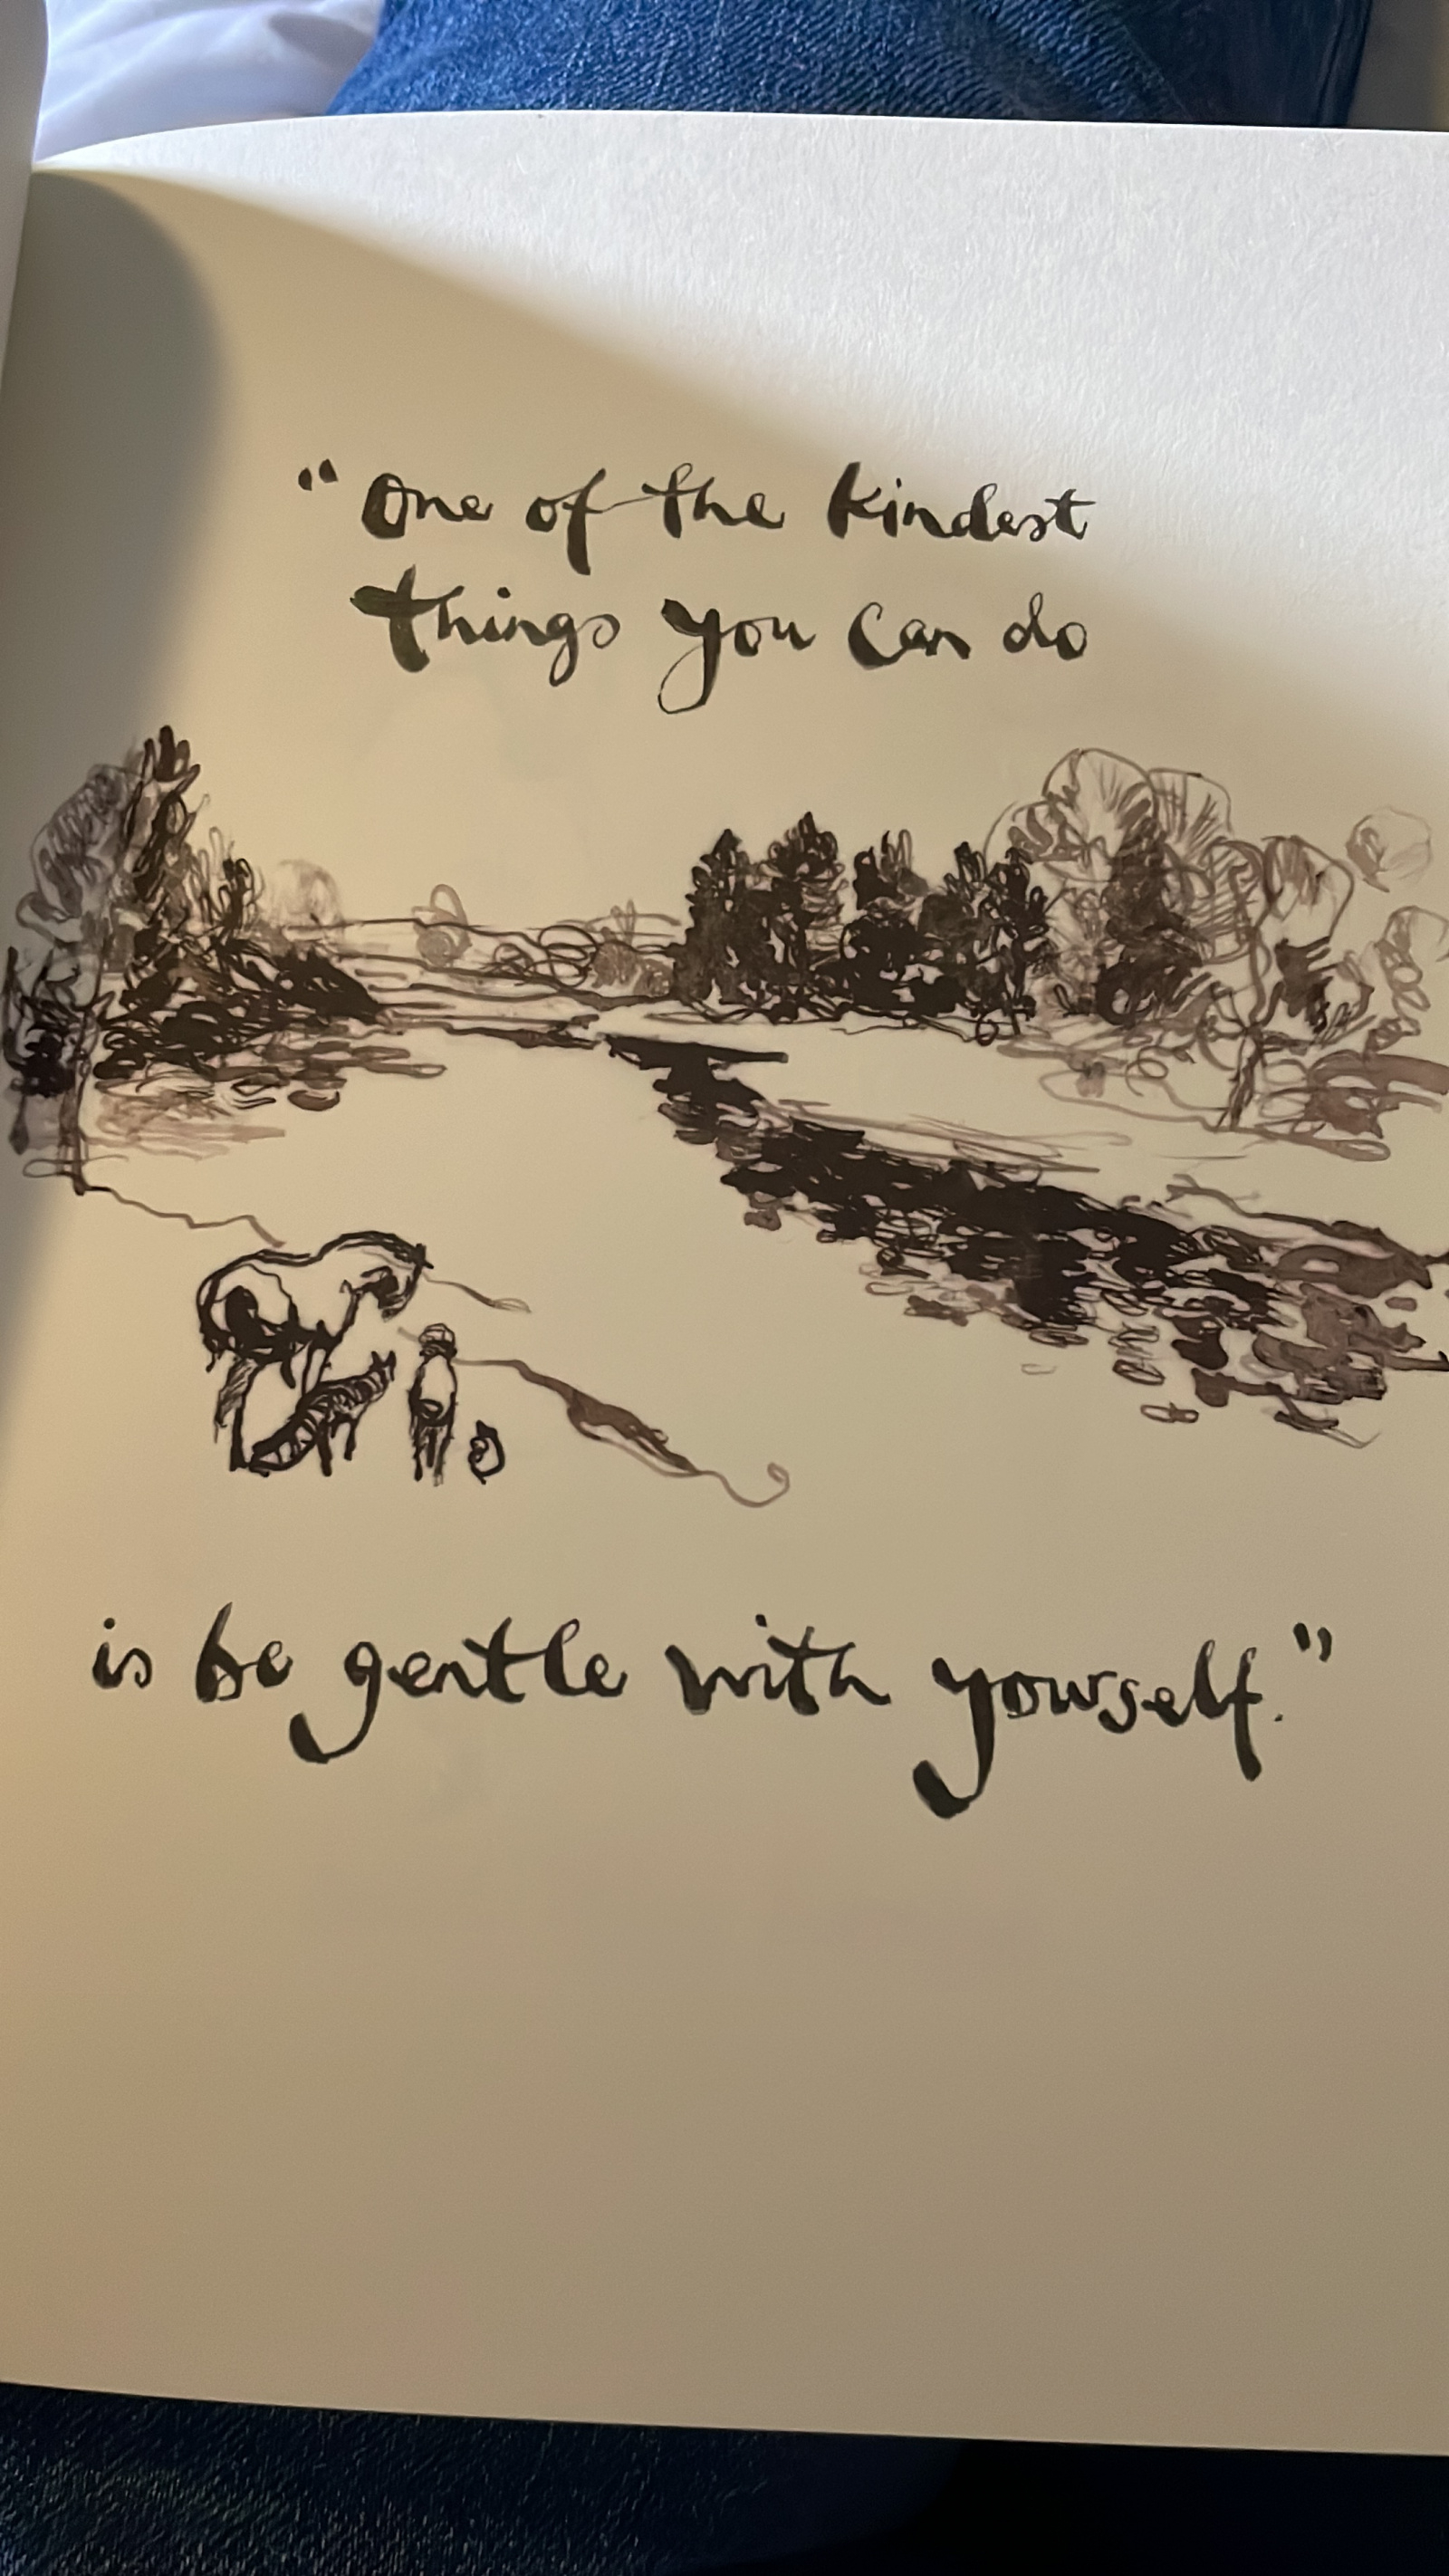 “One of the kindest
things you can do
is be gentle with yourself.”